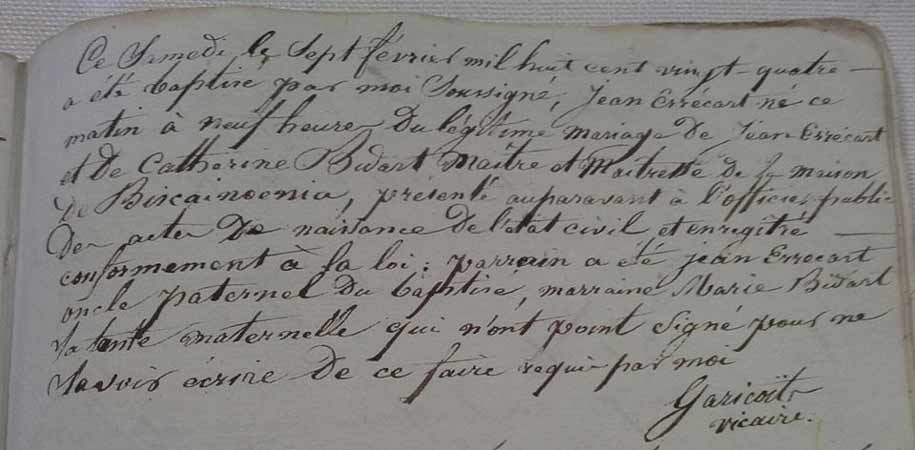 Ce Samedi le Sept février mil huit cent vingt-quatre
a été baptisé par moi Soussigné, Jean Errécart né ce
matin à neuf heures Du légitime mariage De Jean Errécart
et De Catherine Bidart Maître et Maitresse de la maison
De Biscainoenia, présenté auparavant à l'officier public
Des actes De naissance De l'état civil et enregîtré
conformement à la loi: parrain a été jean Errecart
oncle paternel Du baptisé, marraine Marie Bidart
sa tante maternelle qui n'ont point signé pour ne
savoir écrire De ce faire requis par moi
Garicoïts
vicaire.